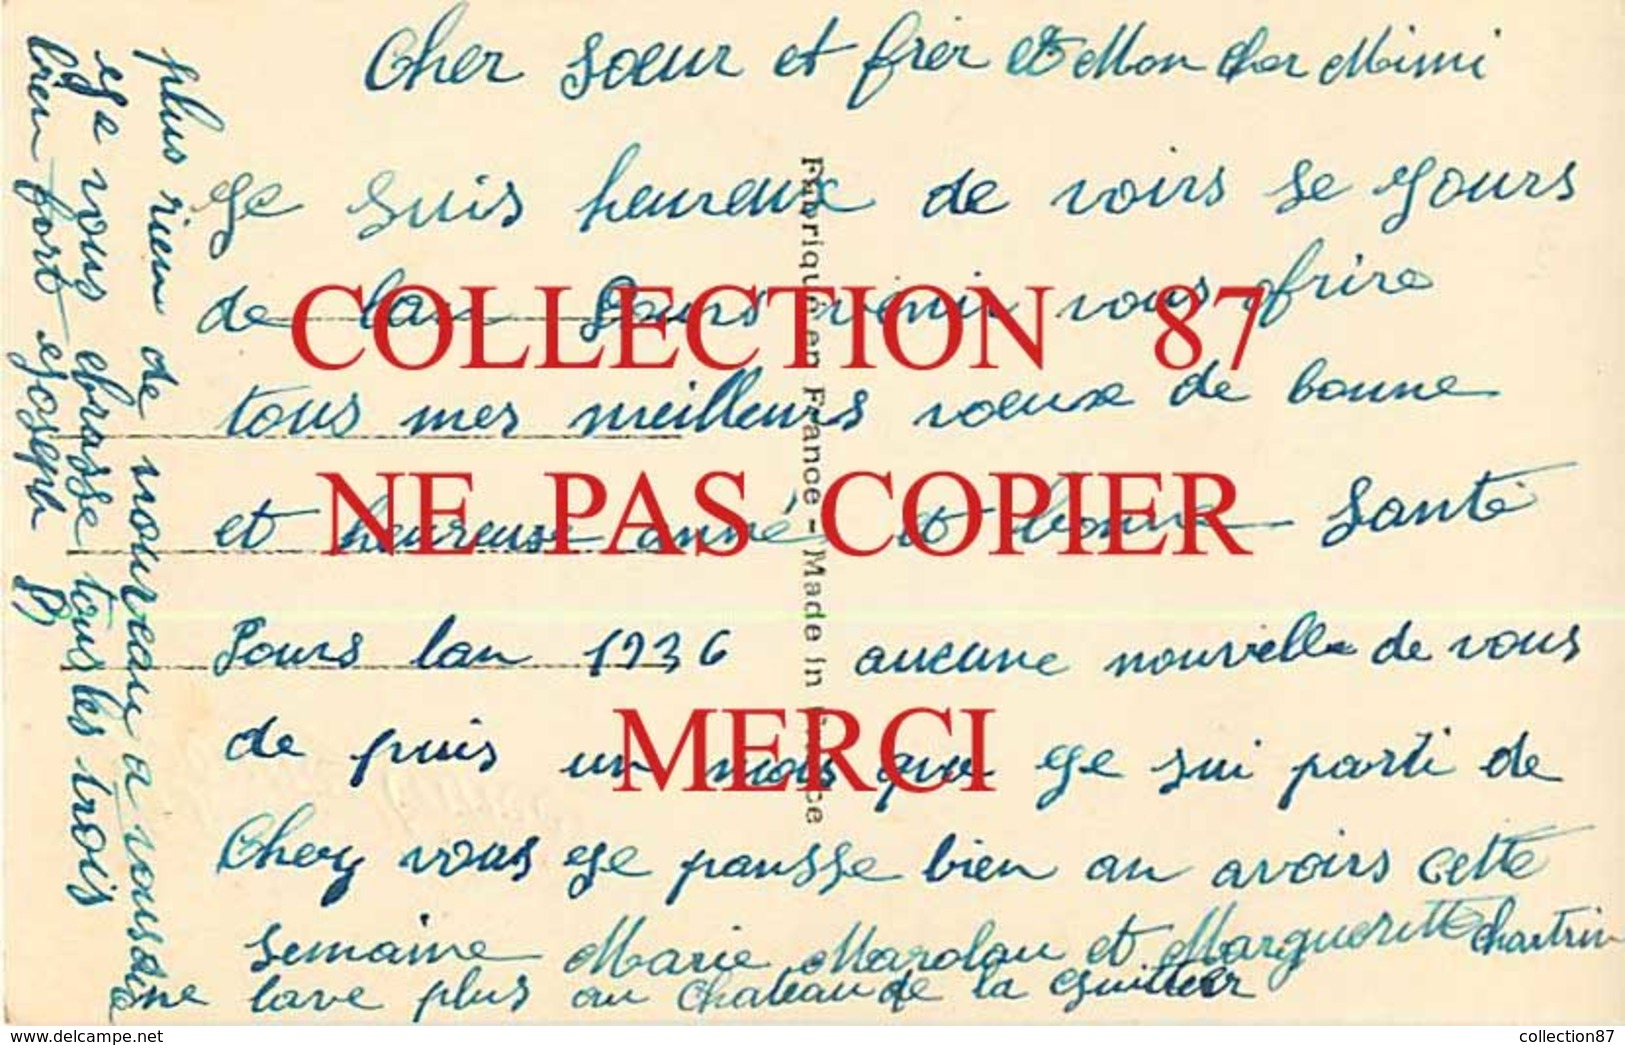 Cher Sœur et frer et Mon Cher Mimi
Ge Suis heureux de voirs se gours
de lan Pours venir vous ofrire
tous mes meilleurs voeux de bonne
et heureuse anné et bonne Santé
Pours lan 1936 aucune nouvelle de vous
de puis un mois que ge sui parti de
Chez vous ge pansse bien an avoirs cette
semaine Marie Marolau et Margueritte Chartrin
lave plus au Chateau de la
plus rien de nouveau a vous dire
ge vous ebrasse tous les trois
bien fort goseph
Fabriqué en France - Made in France
COLLECTION 87
NE PAS COPIER
MERCI
www.delcampe.net
collection87